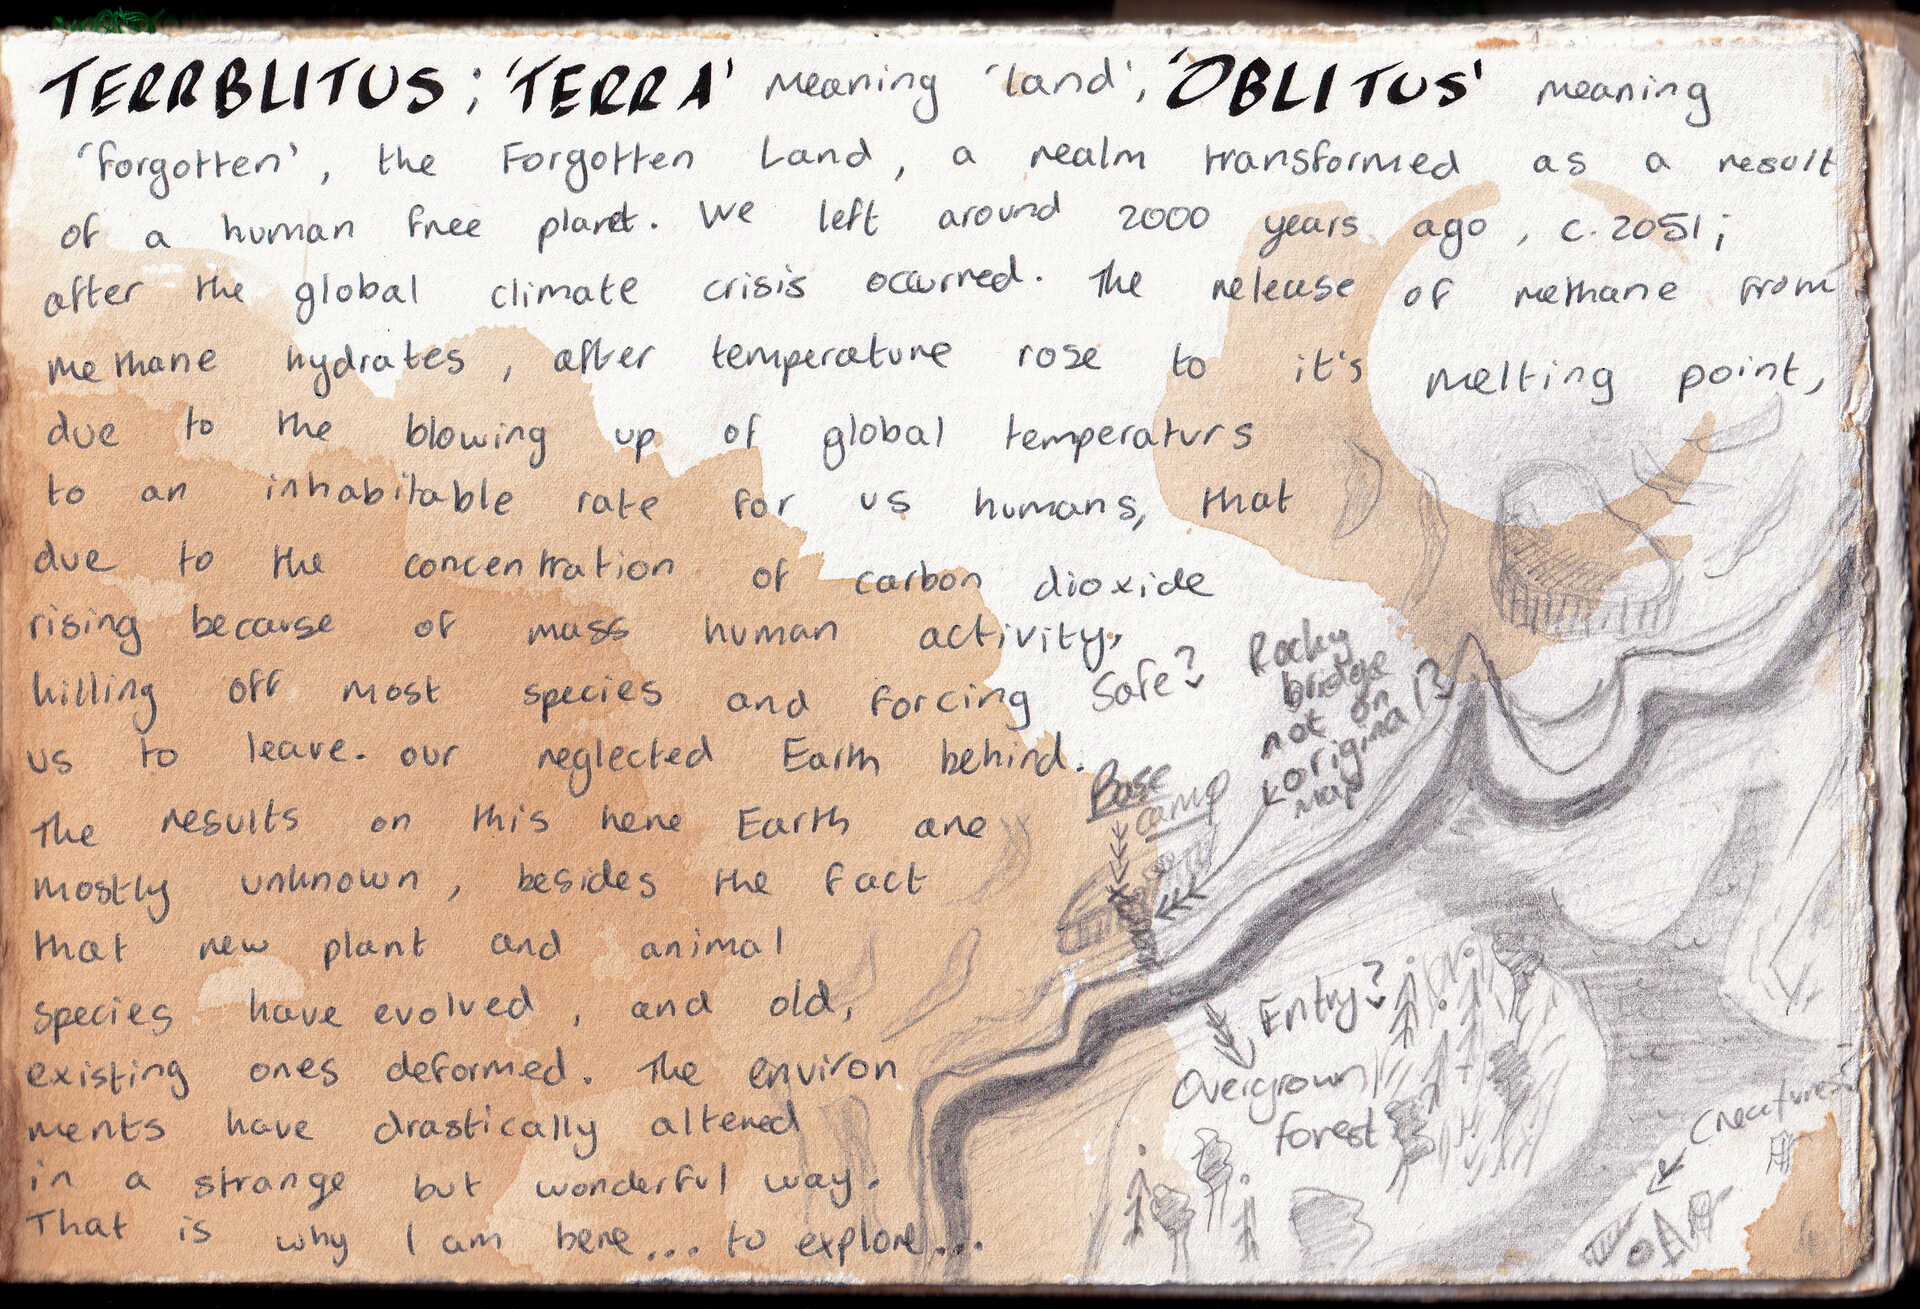 TERRBLITUS; 'TERRA' meaning 'land', 'OBLITUS' meaning
'forgotten', the Forgotten Land, a realm transformed as a result
of a human free planet. We left around 2000 years ago, c.2051;
after the global climate crisis occurred. The release of methane from
methane hydrates, after temperature rose to it's melting point,
due to the blowing up of global temperaturs
to an inhabitable rate for us humans, that
due to the concentration of carbon dioxide
rising because of mass human activity,
killing off most species and forcing
us to leave. our neglected Earth behind.
The results on this here Earth are
mostly unknown, besides the fact
that new plant and animal
species have evolved, and old,
existing ones deformed. The environ
ments have drastically altered
in a strange but wonderful way.
That is why I am here... to explore...
Safe?
Rocky
bridge
not on
original
map
Base
camp
Entry?
Overgrown
forest
Creatures?